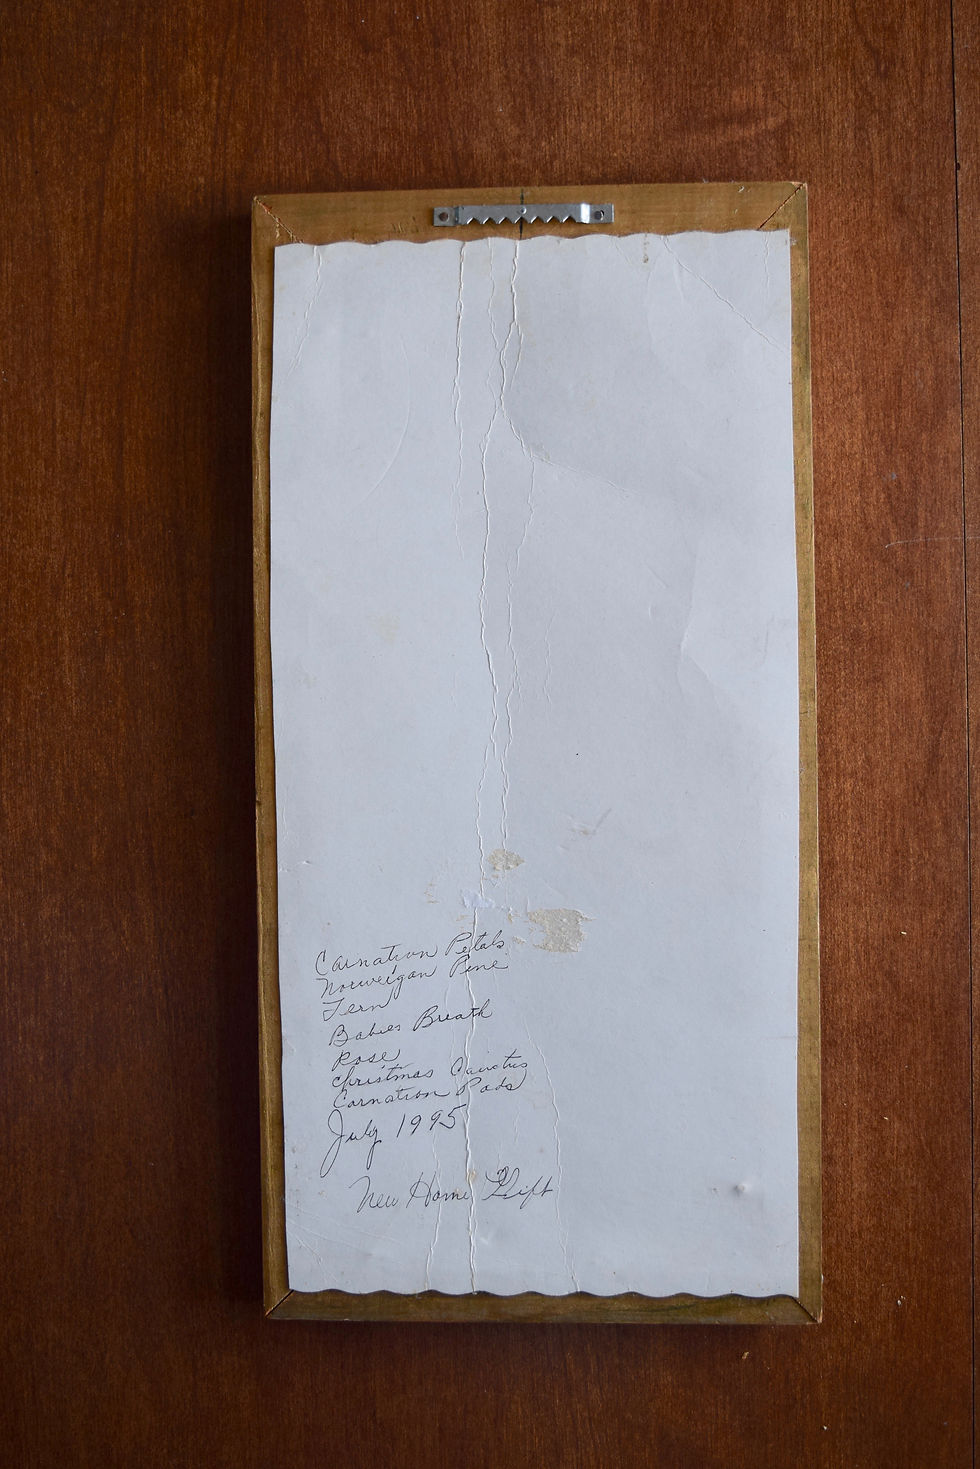 Carnation Petals
Norweigan Pine
Fern
Babies Breath
Rose
Christmas Cauctus
Carnation Pods
July 1995
New Home Gift